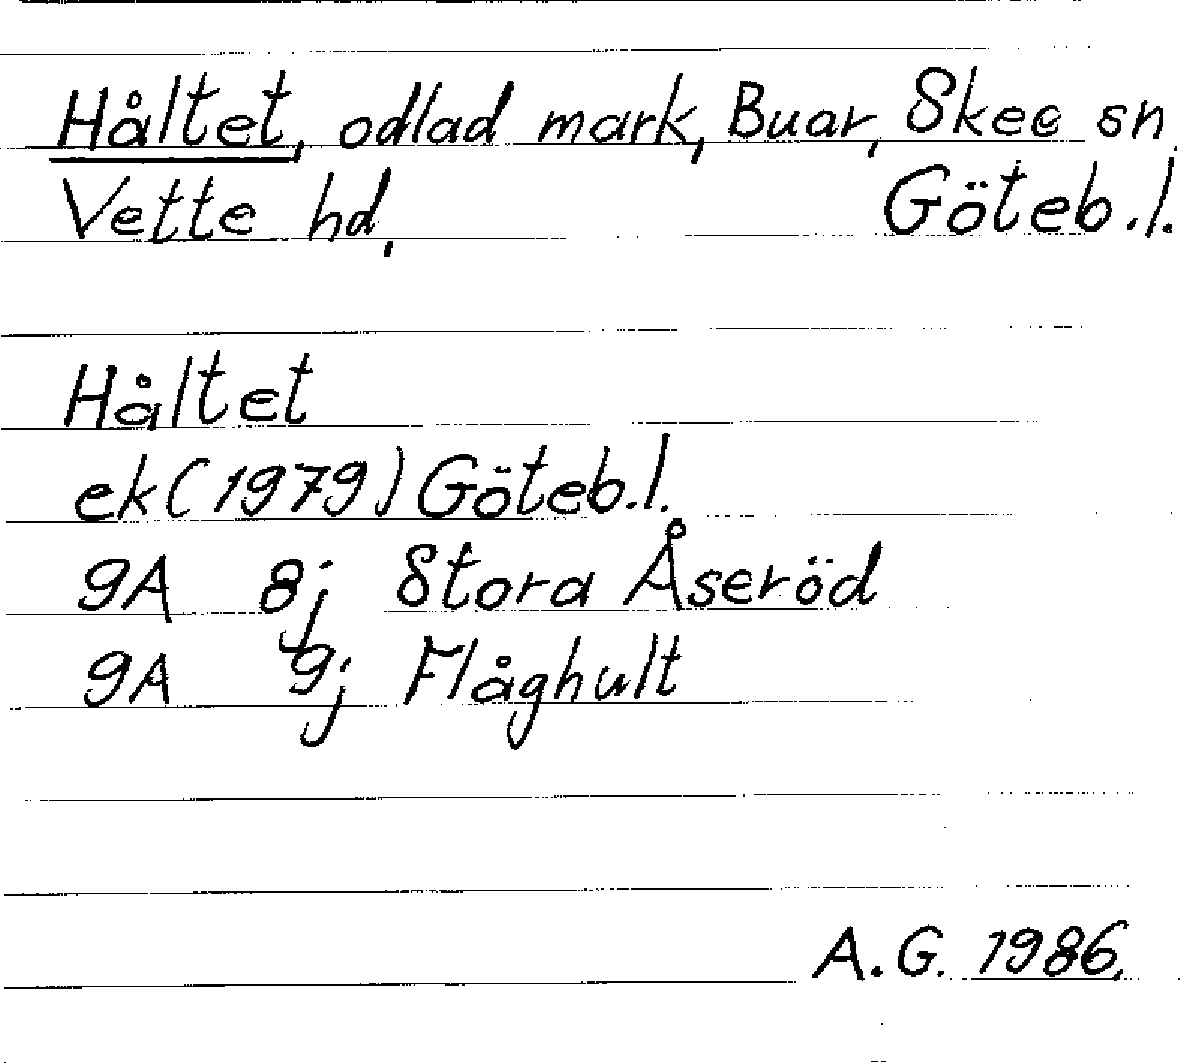 Håltet, odlad mark, Buar, Skee sn
Vette hd, Göteb.l.
Håltet
ek (1979) Göteb.l.
9A 8j Stora Åseröd
9A 9j Flåghult
A.G. 1986.